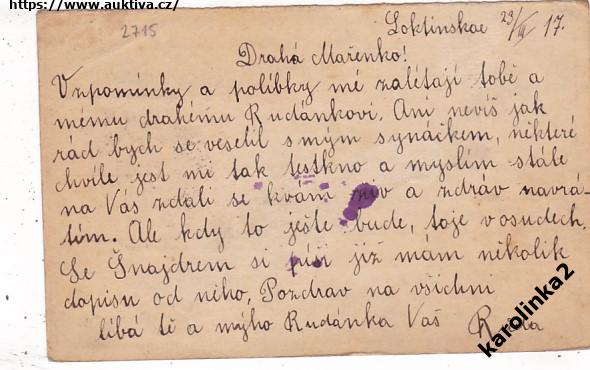 https://www.auktiva.cz/
2715
Loktinskae 23/III 17.
Drahá Mařenko!
Vzpomínky a polibky mé zalétají tobě a
mému drahému Rudánkovi. Ani nevíš jak
rád bych se veselil s mým synáčkem, některé
chvíle jest mi tak testkno a myslím stále
na Vás zdali se kvám živ a zdráv navrá-
tím. Ale kdy to ješte bude, toje vosudech.
Se Šnajdrem si píši již mám několik
dopisu od něho, Pozdrav na všichni
líbá tě a mýho Rudánka Váš Ruda
karolinka2